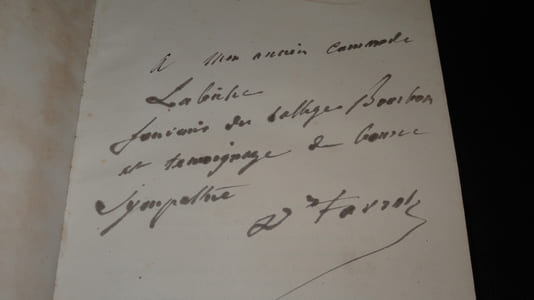 A mon ancien camarade
Labiche
souvenir du college Bourbon
et temoignage de bonne
sympathie
Dr Favrot